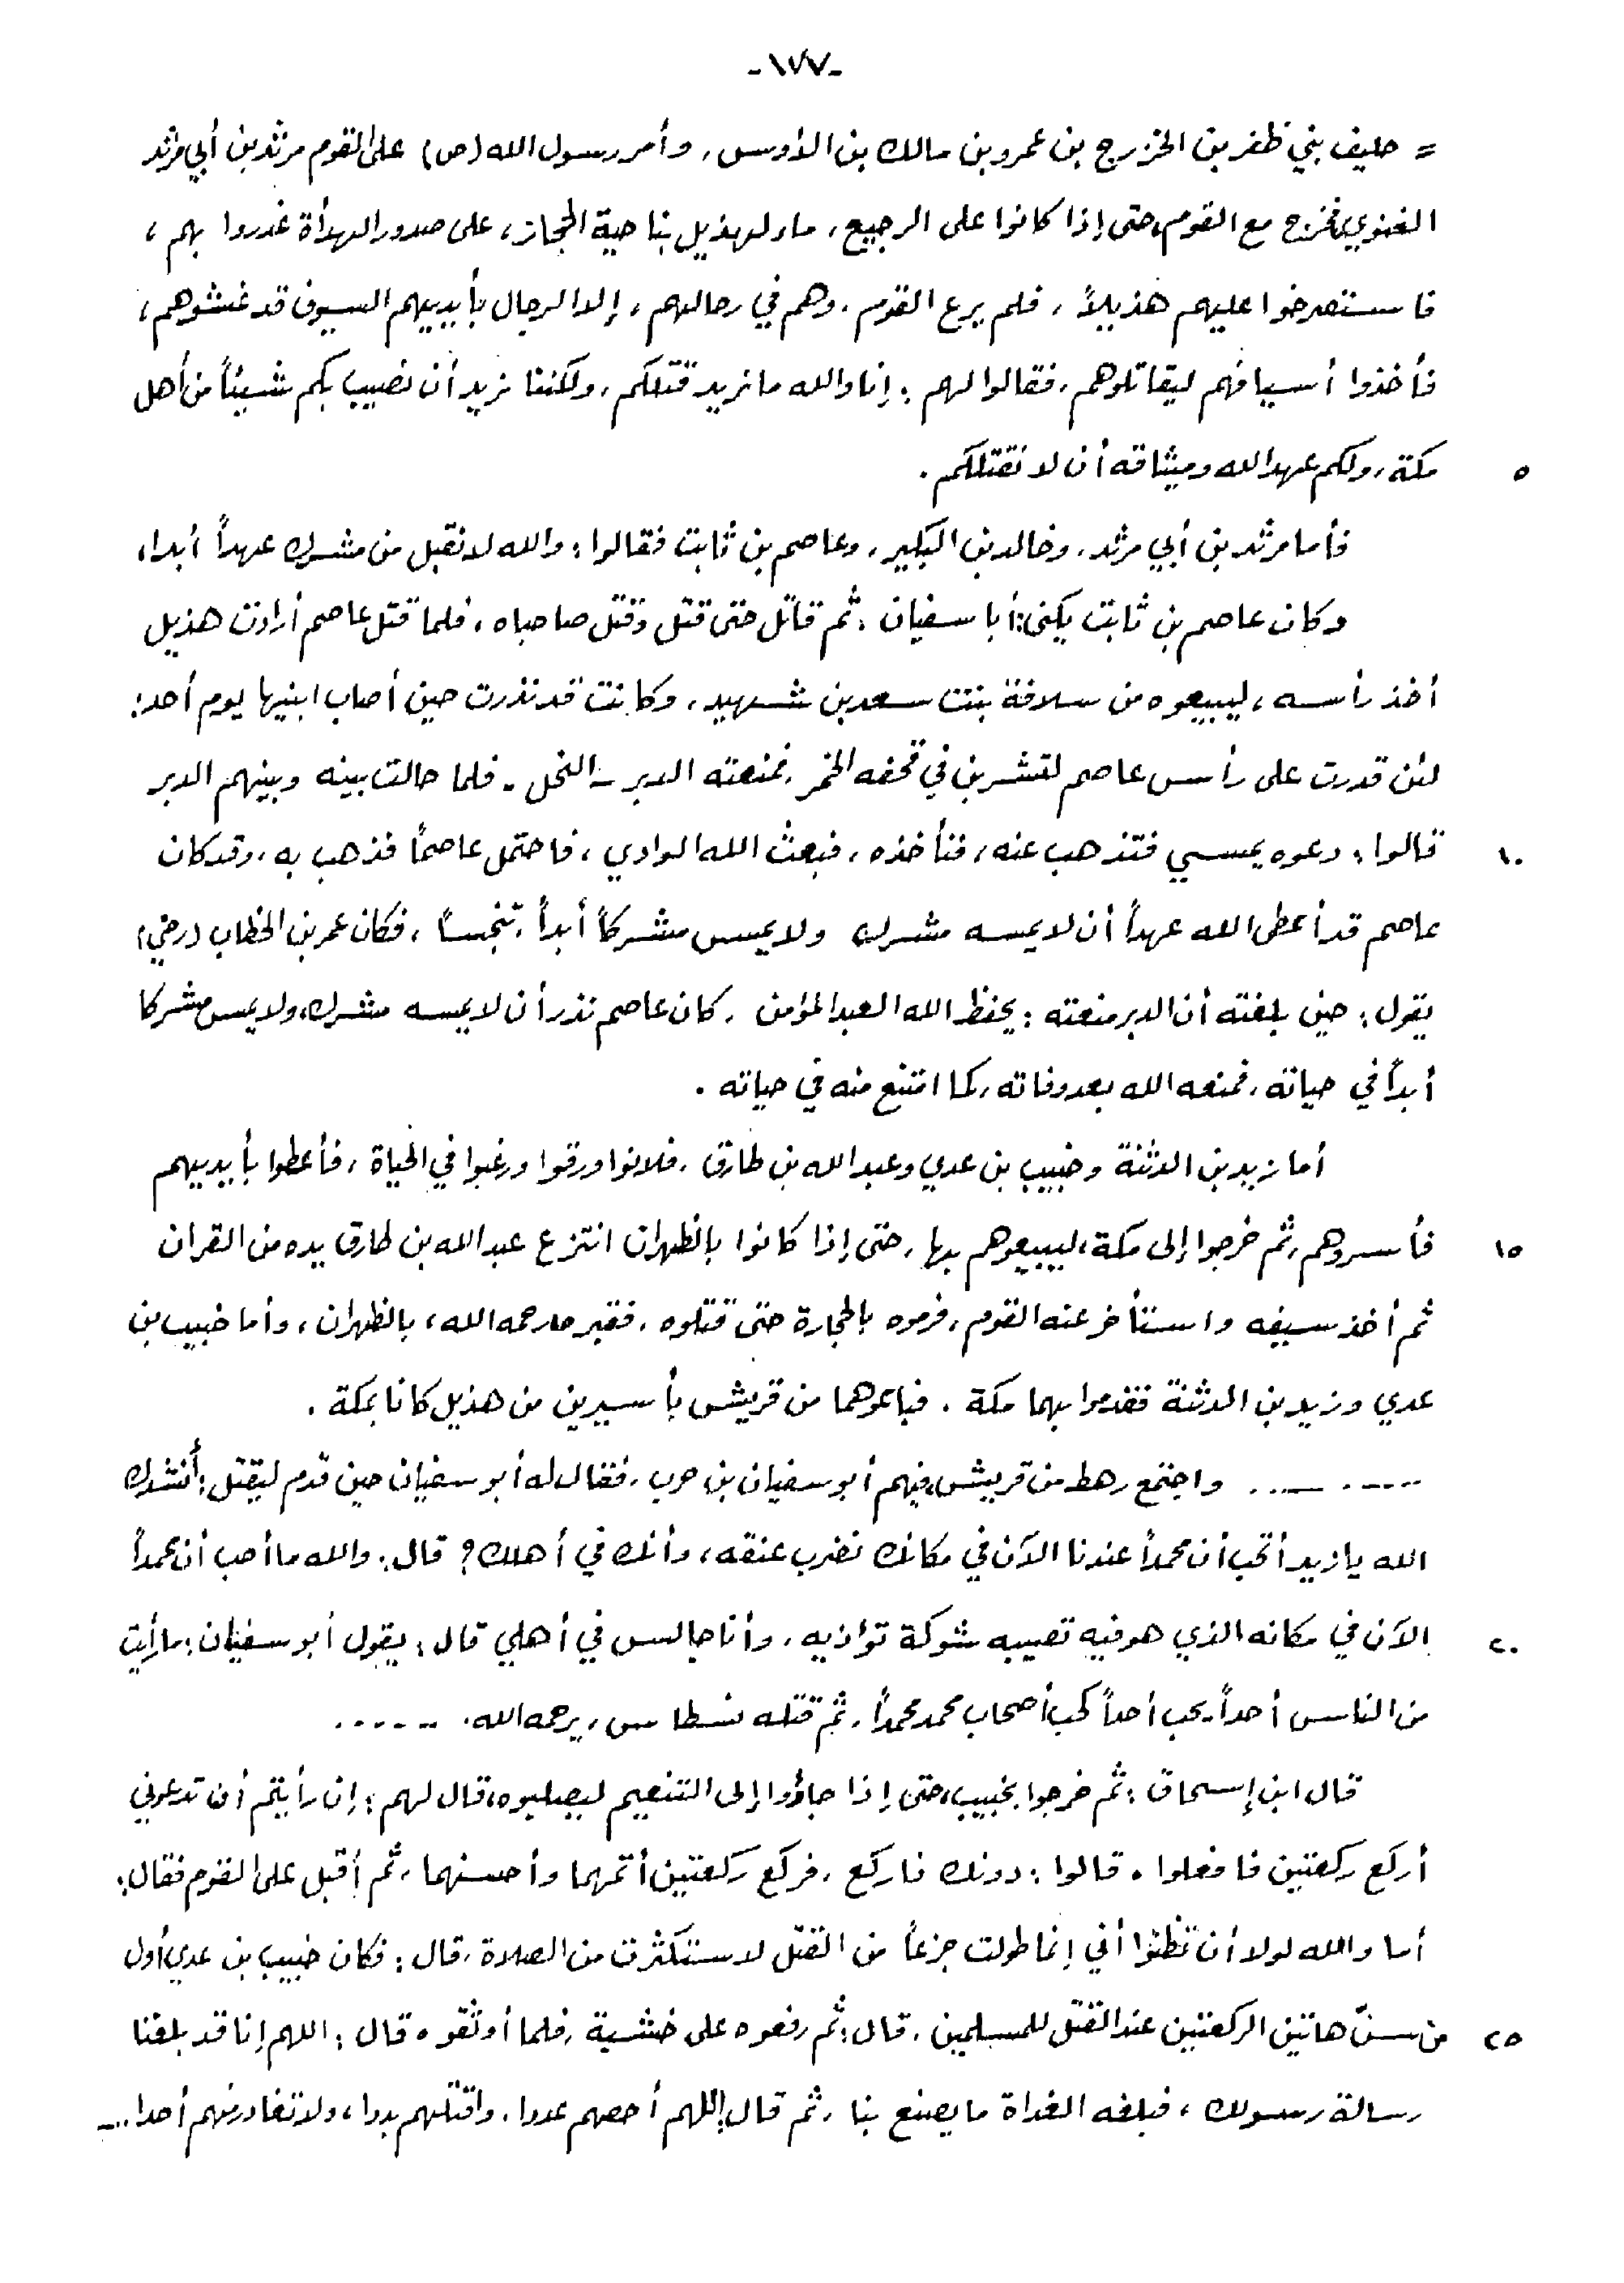 -١٧٧-
= حليف بني ظفر بن الخزرج بن عمرو بن مالك بن الأوس، وأمر رسول الله (ص) على القوم مرثد بن أبي مرثد
الغنوي، فخرج مع القوم، حتى إذا كانوا على الرجيع، ماء لهذيل بناحية الحجاز، على صدور الهدأة غدروا بهم،
فاستصرخوا عليهم هذيلاً، فلم يرع القوم، وهم في رحالهم، إلا الرجال بأيديهم السيوف قد غشوهم،
فأخذوا أسيافهم ليقاتلوهم، فقالوا لهم: إنا والله ما نريد قتلكم، ولكننا نريد أن نصيب بكم شيئاً من أهل
٥ مكة، ولكم عهد الله وميثاقه أن لا نقتلكم.
فأما مرثد بن أبي مرثد، وخالد بن البكير، وعاصم بن ثابت فقالوا: والله لا نقبل من مشرك عهداً أبدا،
وكان عاصم بن ثابت يكنى: أبا سفيان، ثم قاتل حتى قتل وقتل صاحباه، فلما قتل عاصم أرادت هذيل
أخذ رأسه، ليبيعوه من سلافة بنت سعد بن شهيد، وكانت قد نذرت حين أصاب ابنيها يوم أحد:
لئن قدرت على رأس عاصم لتشربن في قحفه الخمر، فمنعته الدبر -النحل- فلما حالت بينه وبينهم الدبر
١٠ قالوا: دعوه يمسي فتذهب عنه، فنأخذه، فبعث الله الوادي، فاحتمل عاصماً فذهب به، وقد كان
عاصم قد أعطى الله عهداً أن لا يمسه مشرك ولا يمس مشركاً أبداً، تنجساً، فكان عمر بن الخطاب (رضي)
يقول: حين بلغته أن الدبر منعته: يحفظ الله العبد المؤمن، كان عاصم نذر أن لا يمسه مشرك، ولا يمس مشركا
أبداً في حياته، فمنعه الله بعد وفاته، كما امتنع منه في حياته.
أما زيد بن الدثنة وخبيب بن عدي وعبد الله بن طارق، فلانوا ورقوا ورغبوا في الحياة، فأعطوا بأيديهم
١٥ فأسروهم، ثم خرجوا إلى مكة، ليبيعوهم بها، حتى إذا كانوا بالظهران انتزع عبد الله بن طارق يده من القران
ثم أخذ سيفه واستأخر عنه القوم، فرموه بالحجارة حتى قتلوه، فقبر هارحمه الله، بالظهران، وأما خبيب بن
عدي وزيد بن الدثنة فقدموا بهما مكة. فباعوهما من قريش بأسيرين من هذيل كانا بمكة.
...... ...... واجتمع رهط من قريش، فيهم أبو سفيان بن حرب، فقال له أبو سفيان حين قدم ليقتل: أنشدك
الله يا زيد أتحب أن محمداً عندنا الآن في مكانك نضرب عنقه، وأنك في أهلك؟ قال: والله ما أحب أن محمداً
٢٠ الآن في مكانه الذي هو فيه تصيبه شوكة تؤاذيه، وأنا جالس في أهلي قال: يقول أبو سفيان: ما رأيت
من الناس أحداً يحب أحداً كحب أصحاب محمد محمداً، ثم قتله نسطاس، يرحمه الله. ......
قال ابن إسحاق: ثم خرجوا بخبيب، حتى إذا جاؤوا إلى التنعيم ليصلبوه، قال لهم: إن رأيتم أن تدعوني
أركع ركعتين فافعلوا. قالوا: دونك فاركع، فركع ركعتين أتمهما وأحسنهما، ثم أقبل على القوم فقال:
أما والله لولا أن تظنوا أني إنما طولت جزعاً من القتل لاستكثرت من الصلاة، قال: فكان خبيب بن عدي أول
٢٥ من سنّ هاتين الركعتين عند القتل للمسلمين. قال: ثم رفعوه على خشبة، فلما أوثقوه قال: اللهم إنا قد بلغنا
رسالة رسولك، فبلغه الغداة ما يصنع بنا، ثم قال: اللهم أحصهم عددا، واقتلهم بددا، ولا تغادر منهم أحدا...=